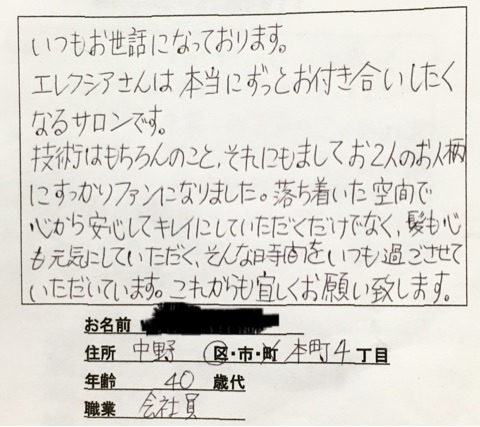 いつもお世話になっております。
エレクシアさんは本当にずっとお付き合いしたく
なるサロンです。
技術はもちろんのこと、それにもましてお2人のお人柄
にすっかりファンになりました。落ち着いた空間で
心から安心してキレイにしていただくだけでなく、髪も心
も元気にしていただく、そんな時間をいつも過ごさせて
いただいています。これからも宜しくお願い致します。
お名前
住所 中野 区・市・町 本町4丁目
年齢 40 歳代
職業 会社員